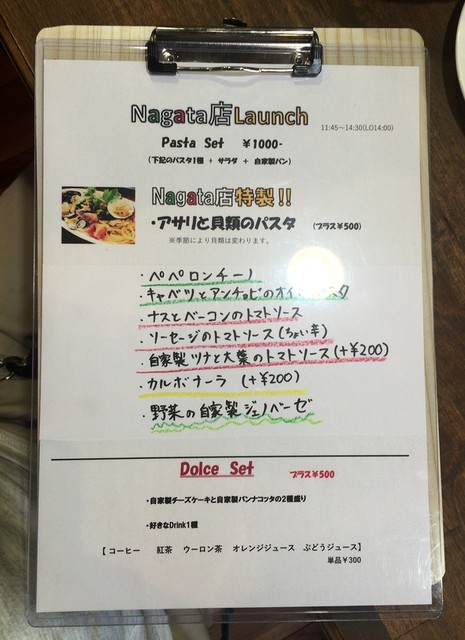 Nagata店Launch
11:45～14:30(LO14:00)
Pasta Set ¥1000-
(下記のパスタ1種 + サラダ + 自家製パン)
Nagata店特製!!
・アサリと貝類のパスタ (プラス¥500)
※季節により貝類は変わります。
・ペペロンチーノ
・キャベツとアンチョビのオイルパスタ
・ナスとベーコンのトマトソース
・ソーセージのトマトソース(ちょい辛)
・自家製ツナと大葉のトマトソース(+¥200)
・カルボナーラ (+¥200)
・野菜の自家製ジェノベーゼ
Dolce Set プラス¥500
・自家製チーズケーキと自家製パンナコッタの2種盛り
・好きなDrink1種
【コーヒー 紅茶 ウーロン茶 オレンジジュース ぶどうジュース】
単品¥300